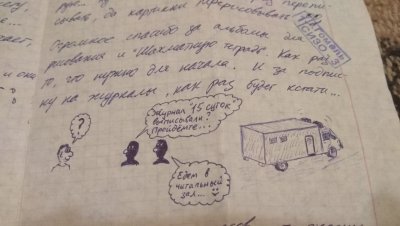 до картинки перерисовыва
Огромное спасибо за альбомы для
рисования и "Шахматную тетрадь". Как раз
то, что нужно для начала. И за подпис-
ку на журналы, как раз будет кстати...
?
Журнал "15 суток"
выписывали?
Пройдёмте...
Едем в
читальный
зал...